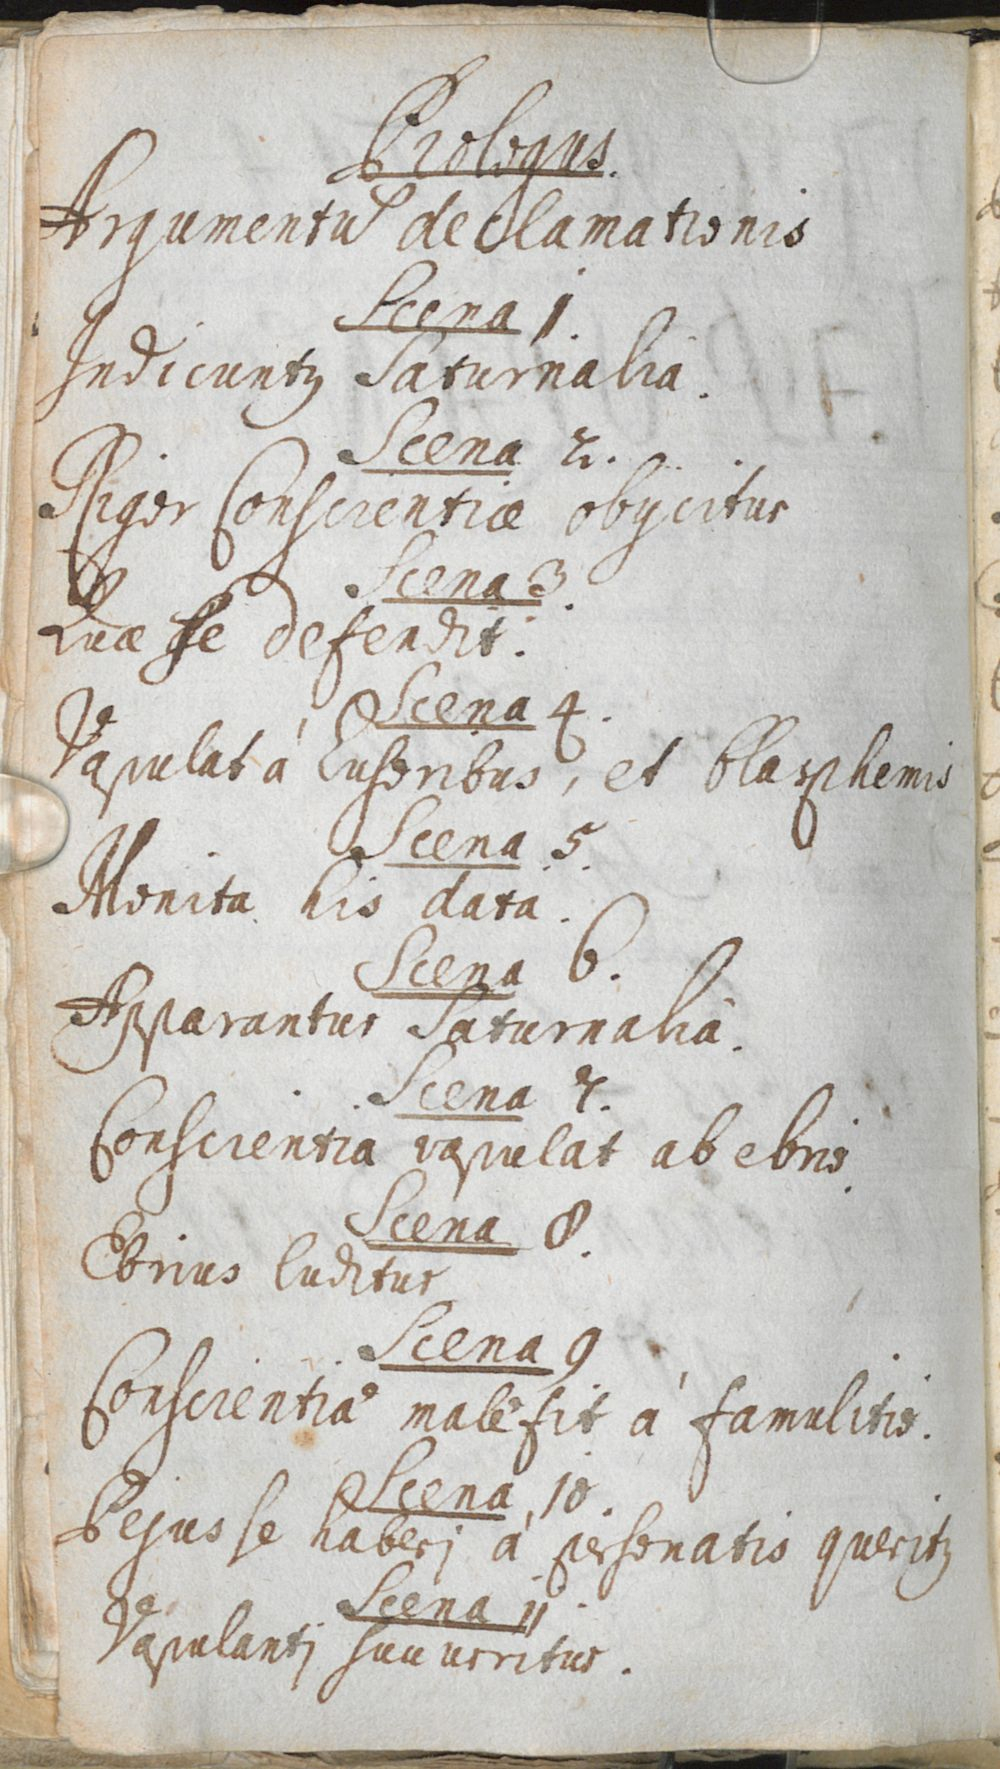 Prologus.
Argumentũ declamationis
Scena 1.
Indicuntꝫ Saturnalia.
Scena 2.
Piger Conscientiæ obijcitur
Scena 3.
Quæ se defendit.
Scena 4.
Vapulat á Lusoribus, et blasphemis
Scena 5.
Monita his data.
Scena 6.
Apparantur Saturnalia.
Scena 7.
Conscientia vapulat ab ebrio.
Scena 8.
Ebrius luditur
Scena 9
Conscientiæ malè fit á famulitio.
Scena 10.
Pejus se haberj á personatis queritꝫ
Scena 11.
Vapulantj succurritur.